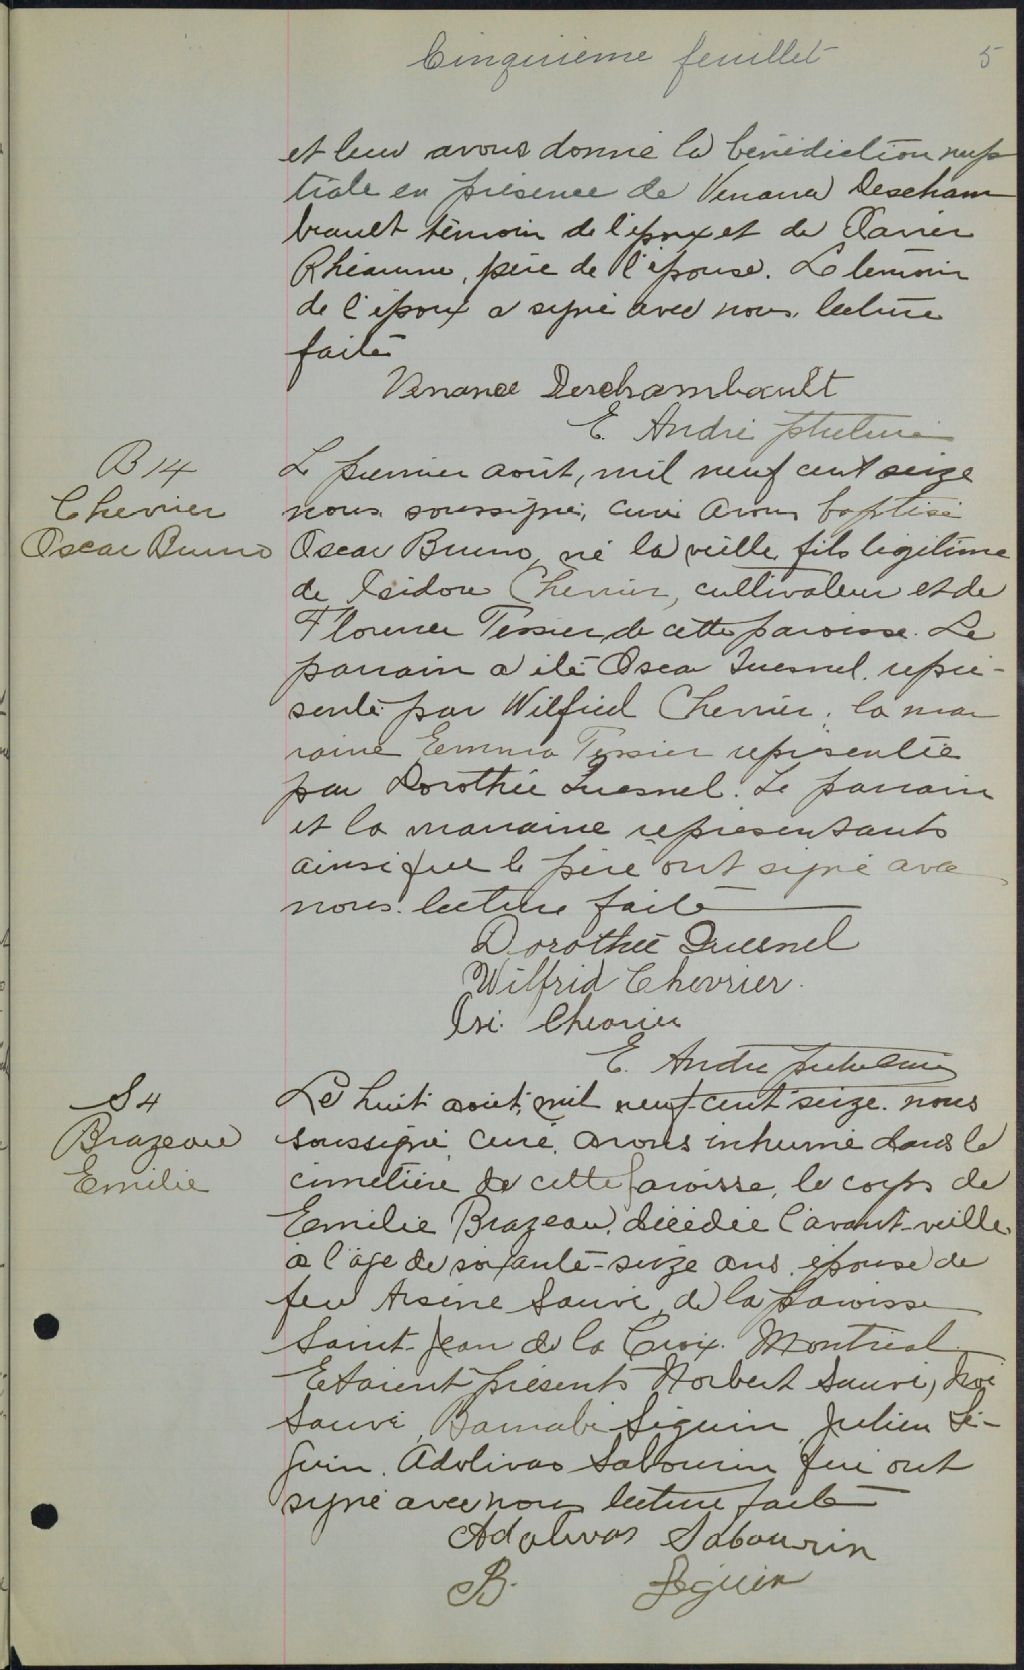 Cinquième feuillet 5
et leur avons donné la bénédiction nup
tiale en présence de Venance Descham
bault témoin de l'époux et de Xavier
Rhéaume, père de l'épouse. Le témoin
de l'époux a signé avec nous, lecture
faite
Venance Deschambault
E. André ptre curé
B 14
Chevrier
Oscar Bruno
Le premier août, mil neuf cent seize
nous soussigné, curé avons baptisé
Oscar Bruno, né la veille fils légitime
de Isidore Chevrier, cultivateur et de
Florence Tessier de cette paroisse. Le
parrain a été Oscar Quesnel, repré-
senté par Wilfrid Chevrier; la mar
raine Emma Tessier représentée
par Dorothée Quesnel. Le parrain
et la marraine représentants
ainsi que le père ont signé avec
nous. lecture faite
Dorothée Quesnel
Wilfrid Chevrier.
Isi. Chevrier
E. André ptre curé
S 4
Brazeau
Emilie
Le huit août, mil neuf cent seize. nous
soussigné, curé, avons inhumé dans le
cimetière de cette paroisse, le corps de
Emilie Brazeau, décédée l'avant-veille
à l'âge de soixante-seize ans, épouse de
feu Arsène Sauvé, de la paroisse
Saint-Jean de la Croix. Montréal.
Etaient présents Norbert Sauvé, Noé
Sauvé, Barnabé Séguin, Julien Sé-
guin. Adolivas Sabourin qui ont
signé avec nous lecture faite
Adolivas Sabourin
B. Seguin